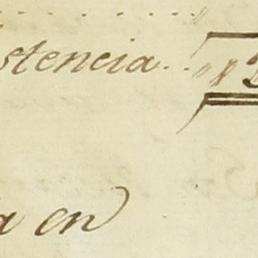 stencia
a en